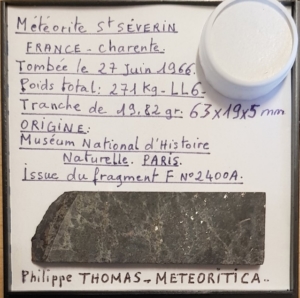 Météorite St SÉVERIN
FRANCE - Charente.
Tombée le 27 Juin 1966.
Poids total: 271 kg - LL6-
Tranche de 19,82 gr. 63x19x5 mm
ORIGINE:
Muséum National d'Histoire
Naturelle. PARIS.
Issue du fragment F N°2400A.
Philippe THOMAS - METEORITICA..